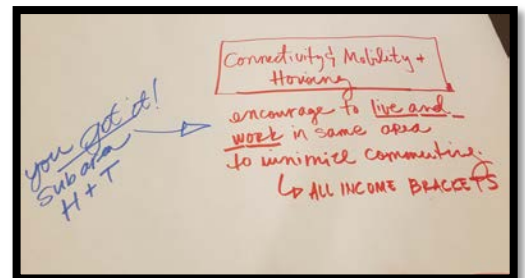 Connectivity & Mobility +
Housing
encourage to live and
work in same area
to minimize commuting.
↳ ALL INCOME BRACKETS
you got it!
subarea
H + T